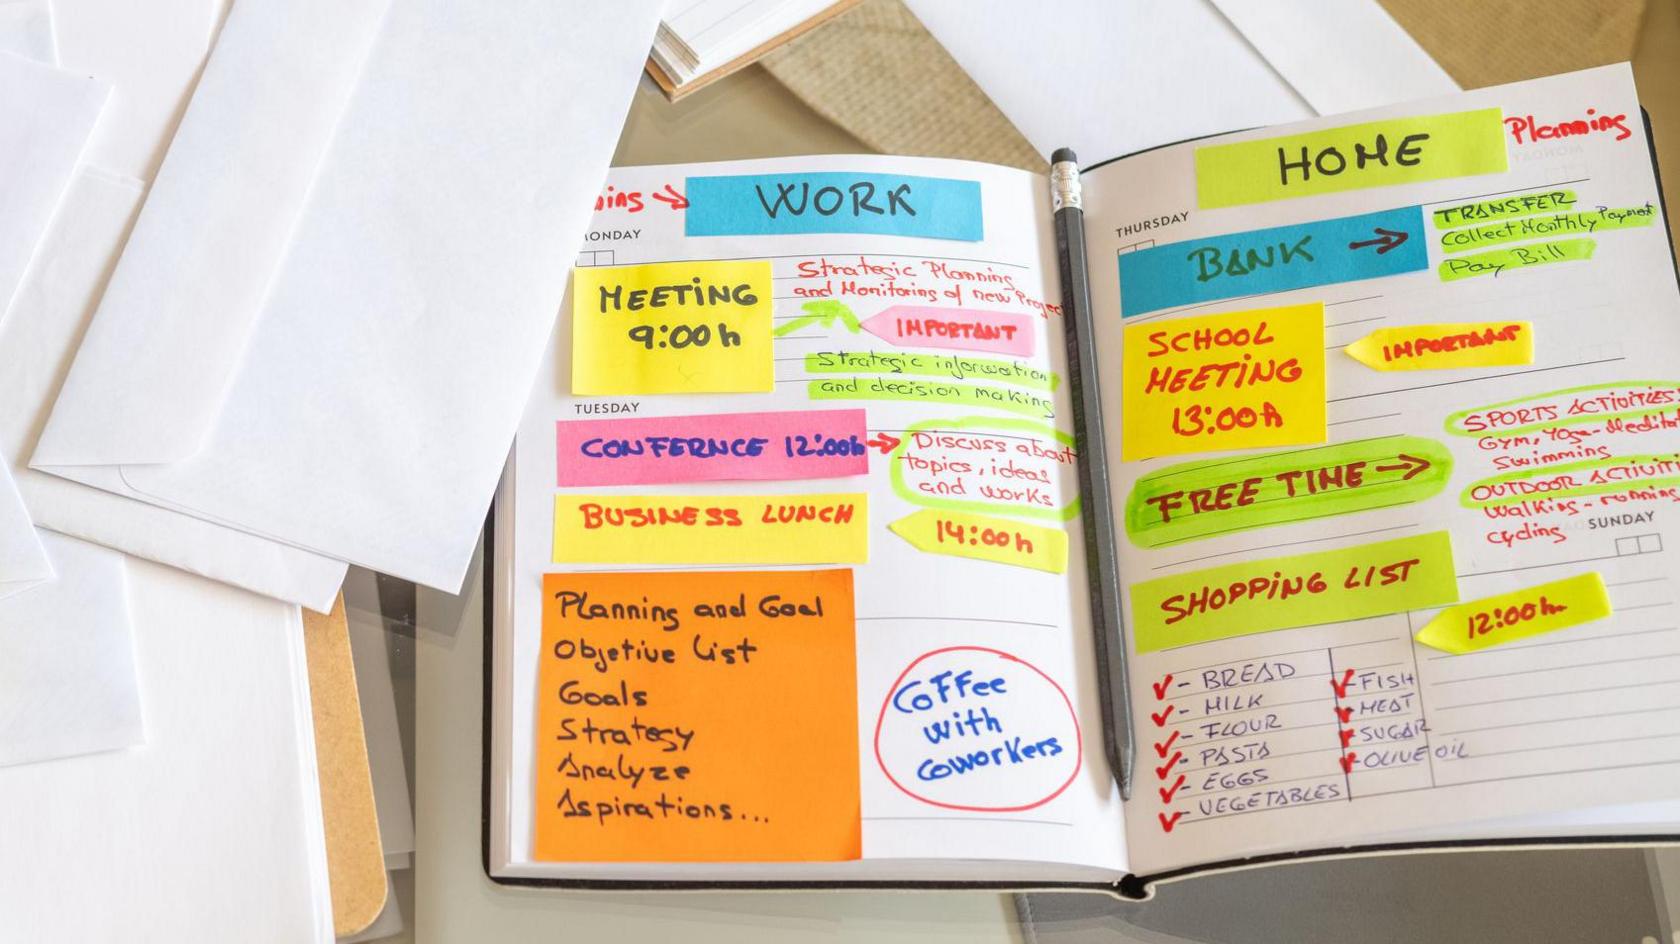 WORK
MONDAY
MEETING
9:00 h
Strategic Planning
and Monitoring of new Project
IMPORTANT
Strategic information
and decision making
TUESDAY
CONFERNCE 12:00h
Discuss about
topics, ideas
and works
BUSINESS LUNCH
14:00 h
Planning and Goal
Objetive List
Goals
Strategy
Analyze
Aspirations...
Coffee
with
coworkers
HOME Planning
THURSDAY
BANK
TRANSFER
Collect Monthly Payment
Pay Bill
SCHOOL
MEETING
13:00 h
IMPORTANT
FREE TIME
SPORTS ACTIVITIES:
Gym, Yoga-Meditat
Swimming
OUTDOOR ACTIVITI
Walking - running
cycling
SUNDAY
SHOPPING LIST
12:00h
- BREAD
- MILK
- FLOUR
- PASTA
- EGGS
- VEGETABLES
- FISH
- MEAT
- SUGAR
- OLIVE OIL